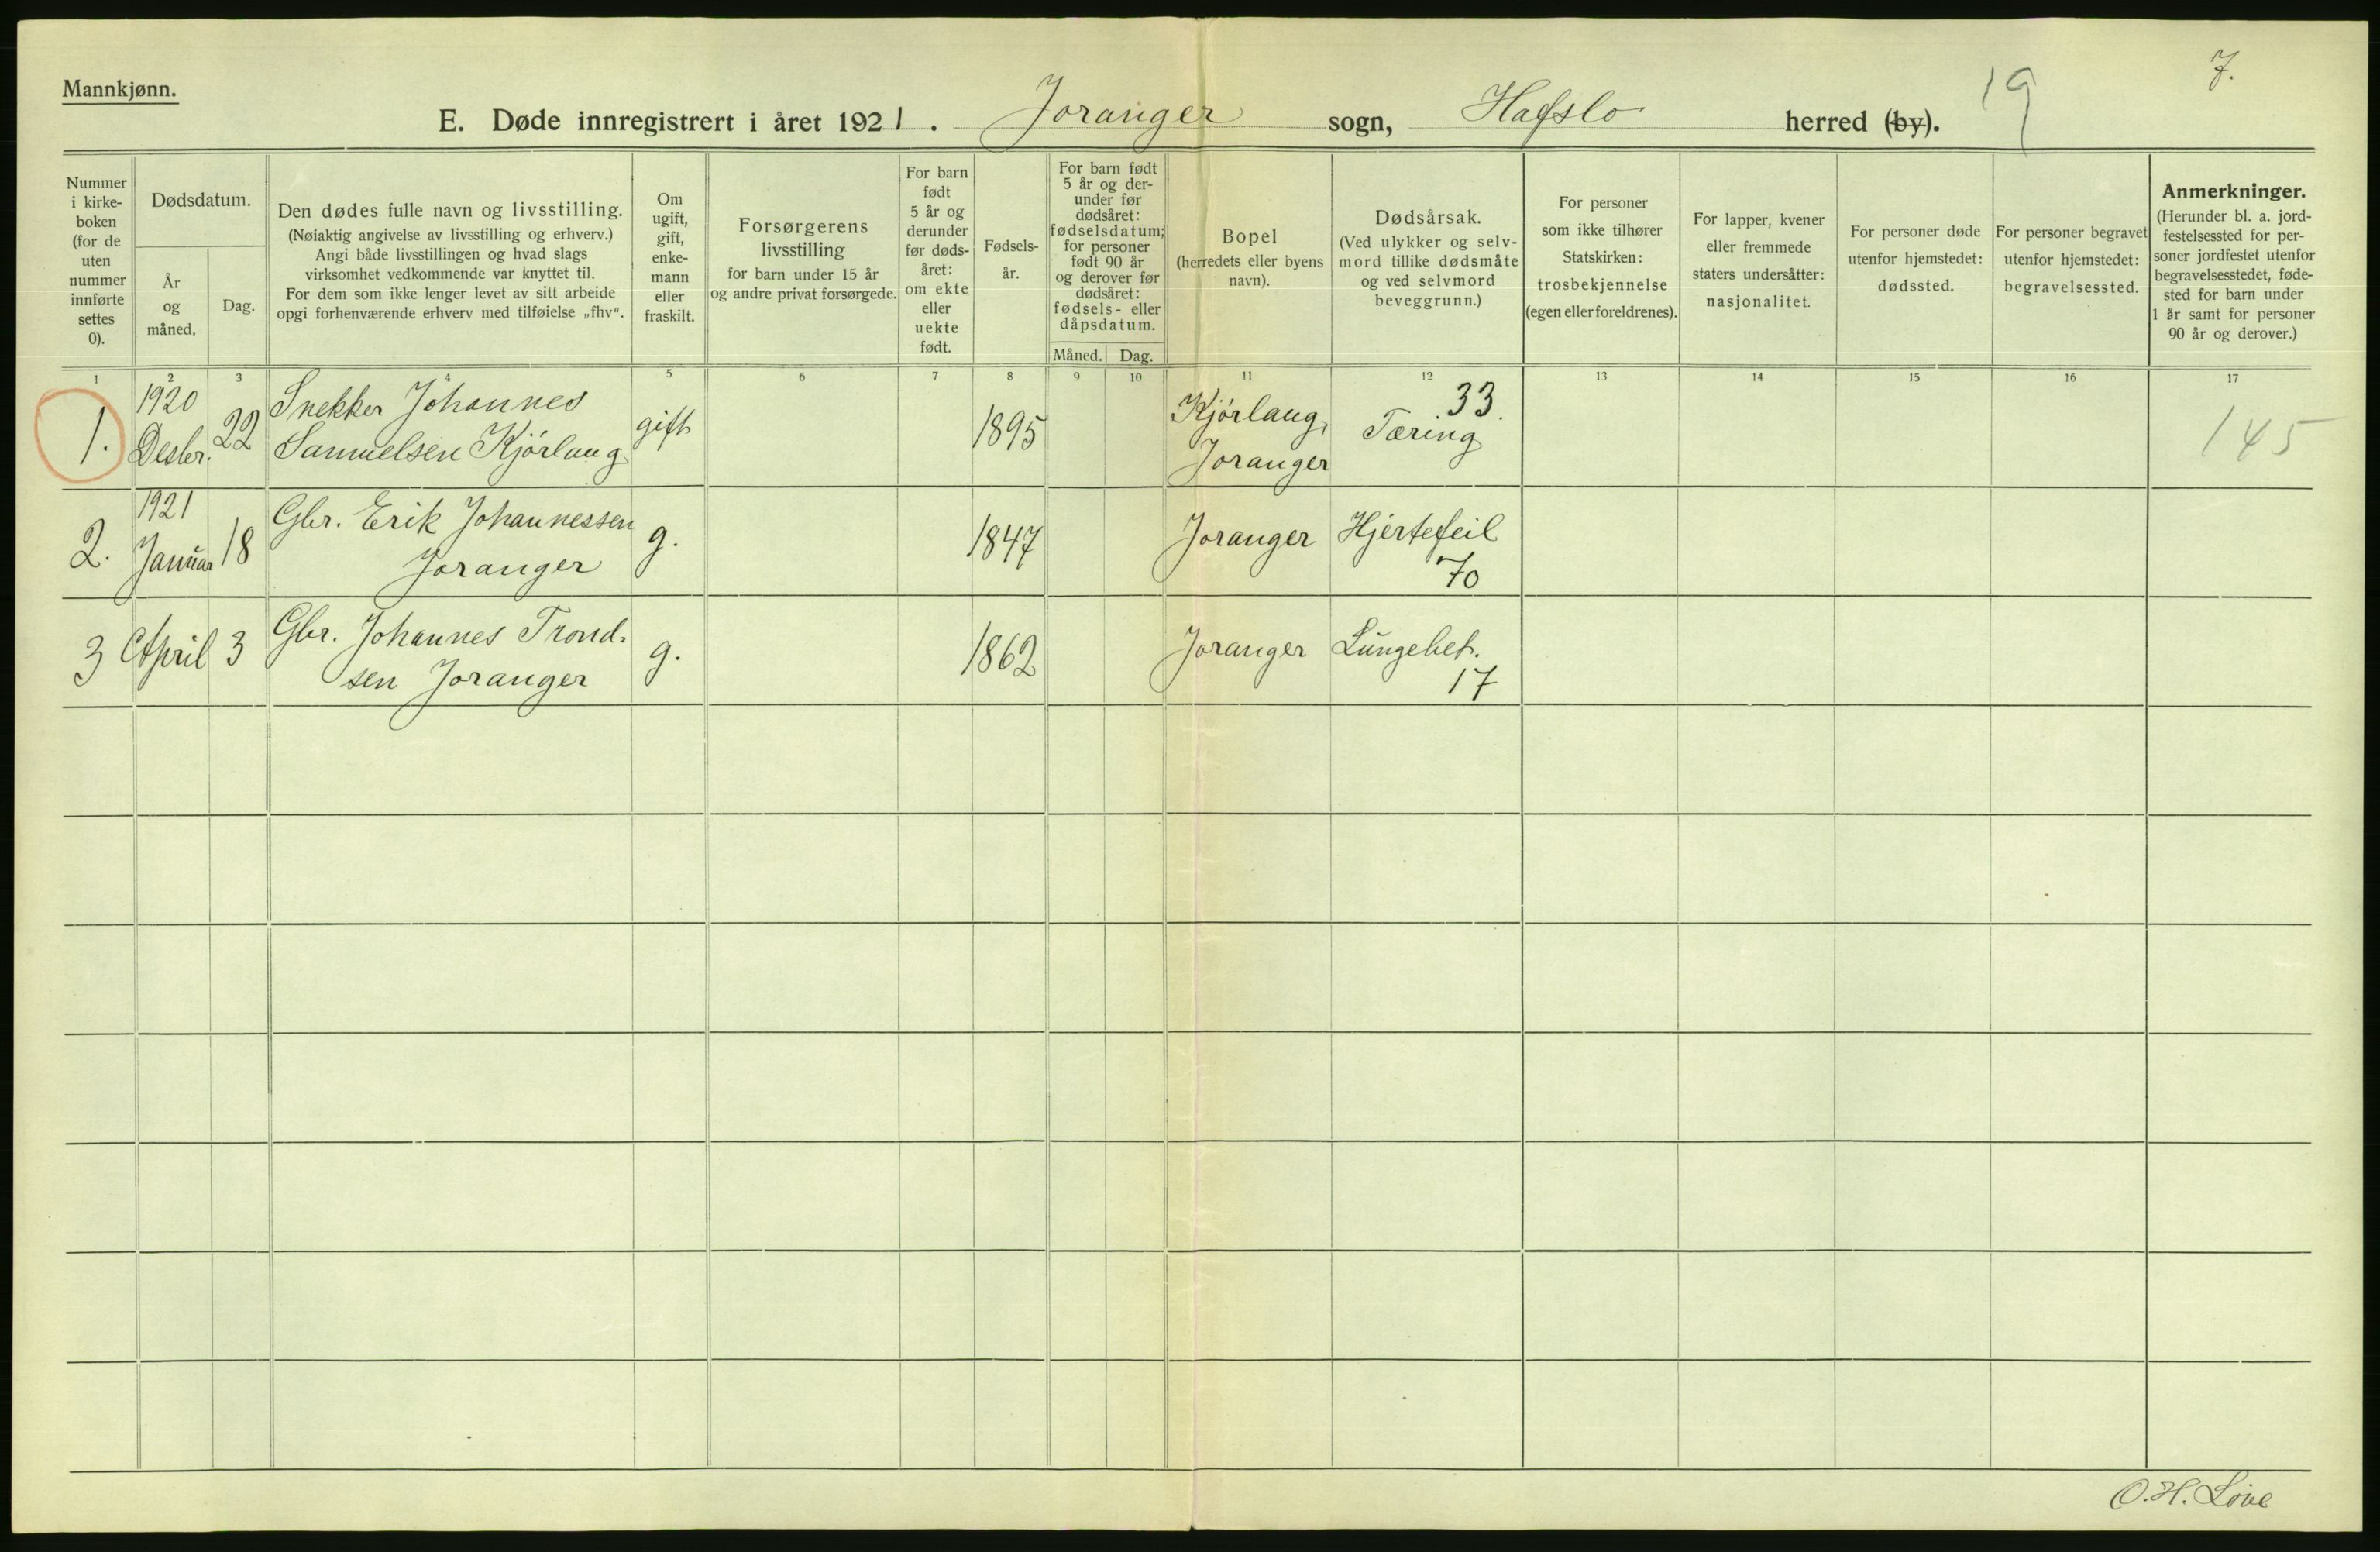 7.
19
Mannkjønn.
E. Døde innregistrert i året 1921. Joranger sogn, Hafslo herred (by).
Nummer
i kirke-
boken
(for de
uten
nummer
innførte
settes
0).
Dødsdatum.
År
og
måned.
Dag.
Den dødes fulle navn og livsstilling.
(Nøiaktig angivelse av livsstilling og erhverv.)
Angi både livsstillingen og hvad slags
virksomhet vedkommende var knyttet til.
For dem som ikke lenger levet av sitt arbeide
opgi forhenværende erhverv med tilføielse „fhv“.
Om
ugift,
gift,
enke-
mann
eller
fraskilt.
Forsørgerens
livsstilling
for barn under 15 år
og andre privat forsørgede.
For barn
født
5 år og
derunder
før døds-
året:
om ekte
eller
uekte
født.
Fødsels-
år.
For barn født
5 år og der-
under før
dødsåret:
fødselsdatum;
for personer
født 90 år
og derover før
dødsåret:
fødsels- eller
dåpsdatum.
Måned. Dag.
Bopel
(herredets eller byens
navn).
Dødsårsak.
(Ved ulykker og selv-
mord tillike dødsmåte
og ved selvmord
beveggrunn.)
For personer
som ikke tilhører
Statskirken:
trosbekjennelse
(egen eller foreldrenes).
For lapper, kvener
eller fremmede
staters undersåtter:
nasjonalitet.
For personer døde
utenfor hjemstedet:
dødssted.
For personer begravet
utenfor hjemstedet:
begravelsessted.
Anmerkninger.
(Herunder bl. a. jord-
festelsessted for per-
soner jordfestet utenfor
begravelsesstedet, føde-
sted for barn under
1 år samt for personer
90 år og derover.)
1 2 3 4 5 6 7 8 9 10 11 12 13 14 15 16 17
1.
1920
Desbr.
22
Snekker Johannes
Samuelsen Kjørlaug
gift
1895
Kjørlaug,
Joranger
33.
Tæring
145
2.
1921
Januar
18
Gbr. Erik Johannessen
Joranger
g.
1847
Joranger
Hjertefeil
70
3
April
3
Gbr. Johannes Trond-
sen Joranger
g.
1862
Joranger
Lungebet.
17